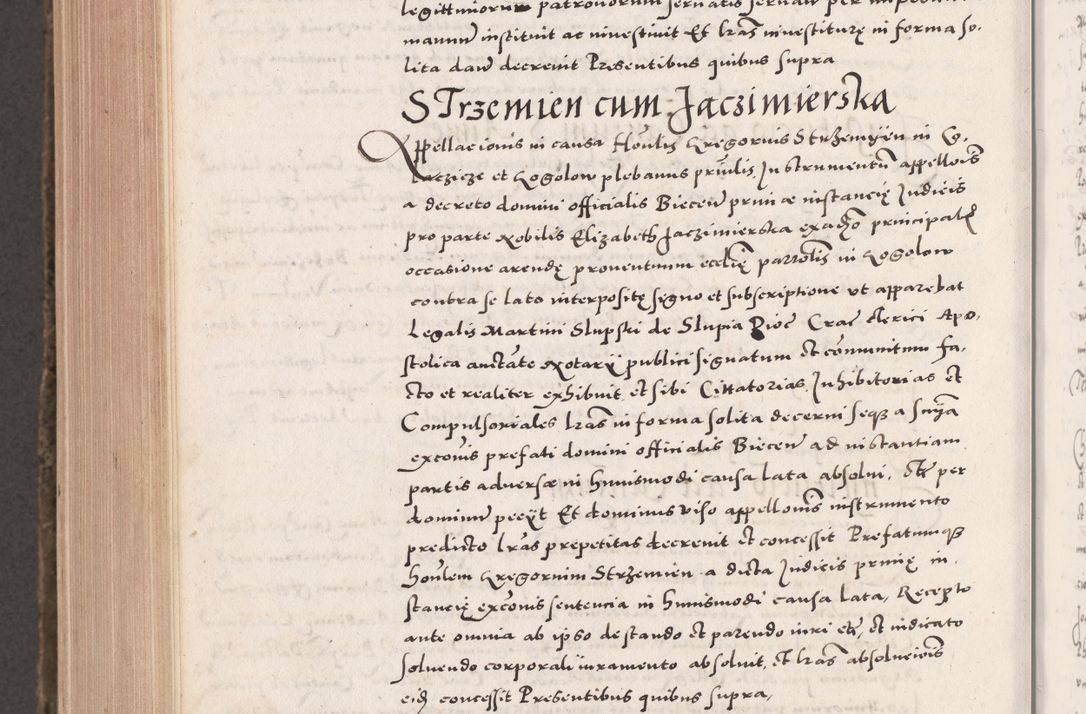 legittimorum patronorum
manum instituit ac investivit Et lras investiturę in forma so-
lita dare decrevit Presentibus quibus supra
STrzemien cum Jaczimierska
Appellacionis in causa Honlis Gregorius Strzemyen in
et Gogolow plebanus privilis, Instrumentū appellois
a decreto domini officialis Biecen primæ instancię Judicis
pro parte Nobilis Elizabeth Jaczimierska principal
occasione arendę proventuum ecclię parrolis in Gogolow
contra se lato interpositę signo et subscriptione ut apparebat
Legalis Martini Slupski de Slupia Dioc Crac Clerici Apo-
stolica auctate Notarÿ publici signatum et cōmunitum fa-
cto et realiter exhibuit et sibi Cittatorias, Inhibitorias et
Compulsoriales lras in forma solita decerni seqз a sniā
excōnis prefati domini officialis Biecen ad instantiam
partis adversæ in huiusmodi causa lata absolvi, etc per
dominum peeÿt Et dominus viso appellonis instrumento
predicto lras prepetitas decrevit et concessit Prefatumqз
honlem Gregorium Strzemien a dicta Judicis primę in-
stancię excōnis sentencia in huiusmodi causa lata, Recepto
ante omnia ab ipso de stando et parendo iuri etc, et iudicato
solvendo corporali iuramento absolvit, et lras absolucionis
eid concessit Presentibus quibus supra,